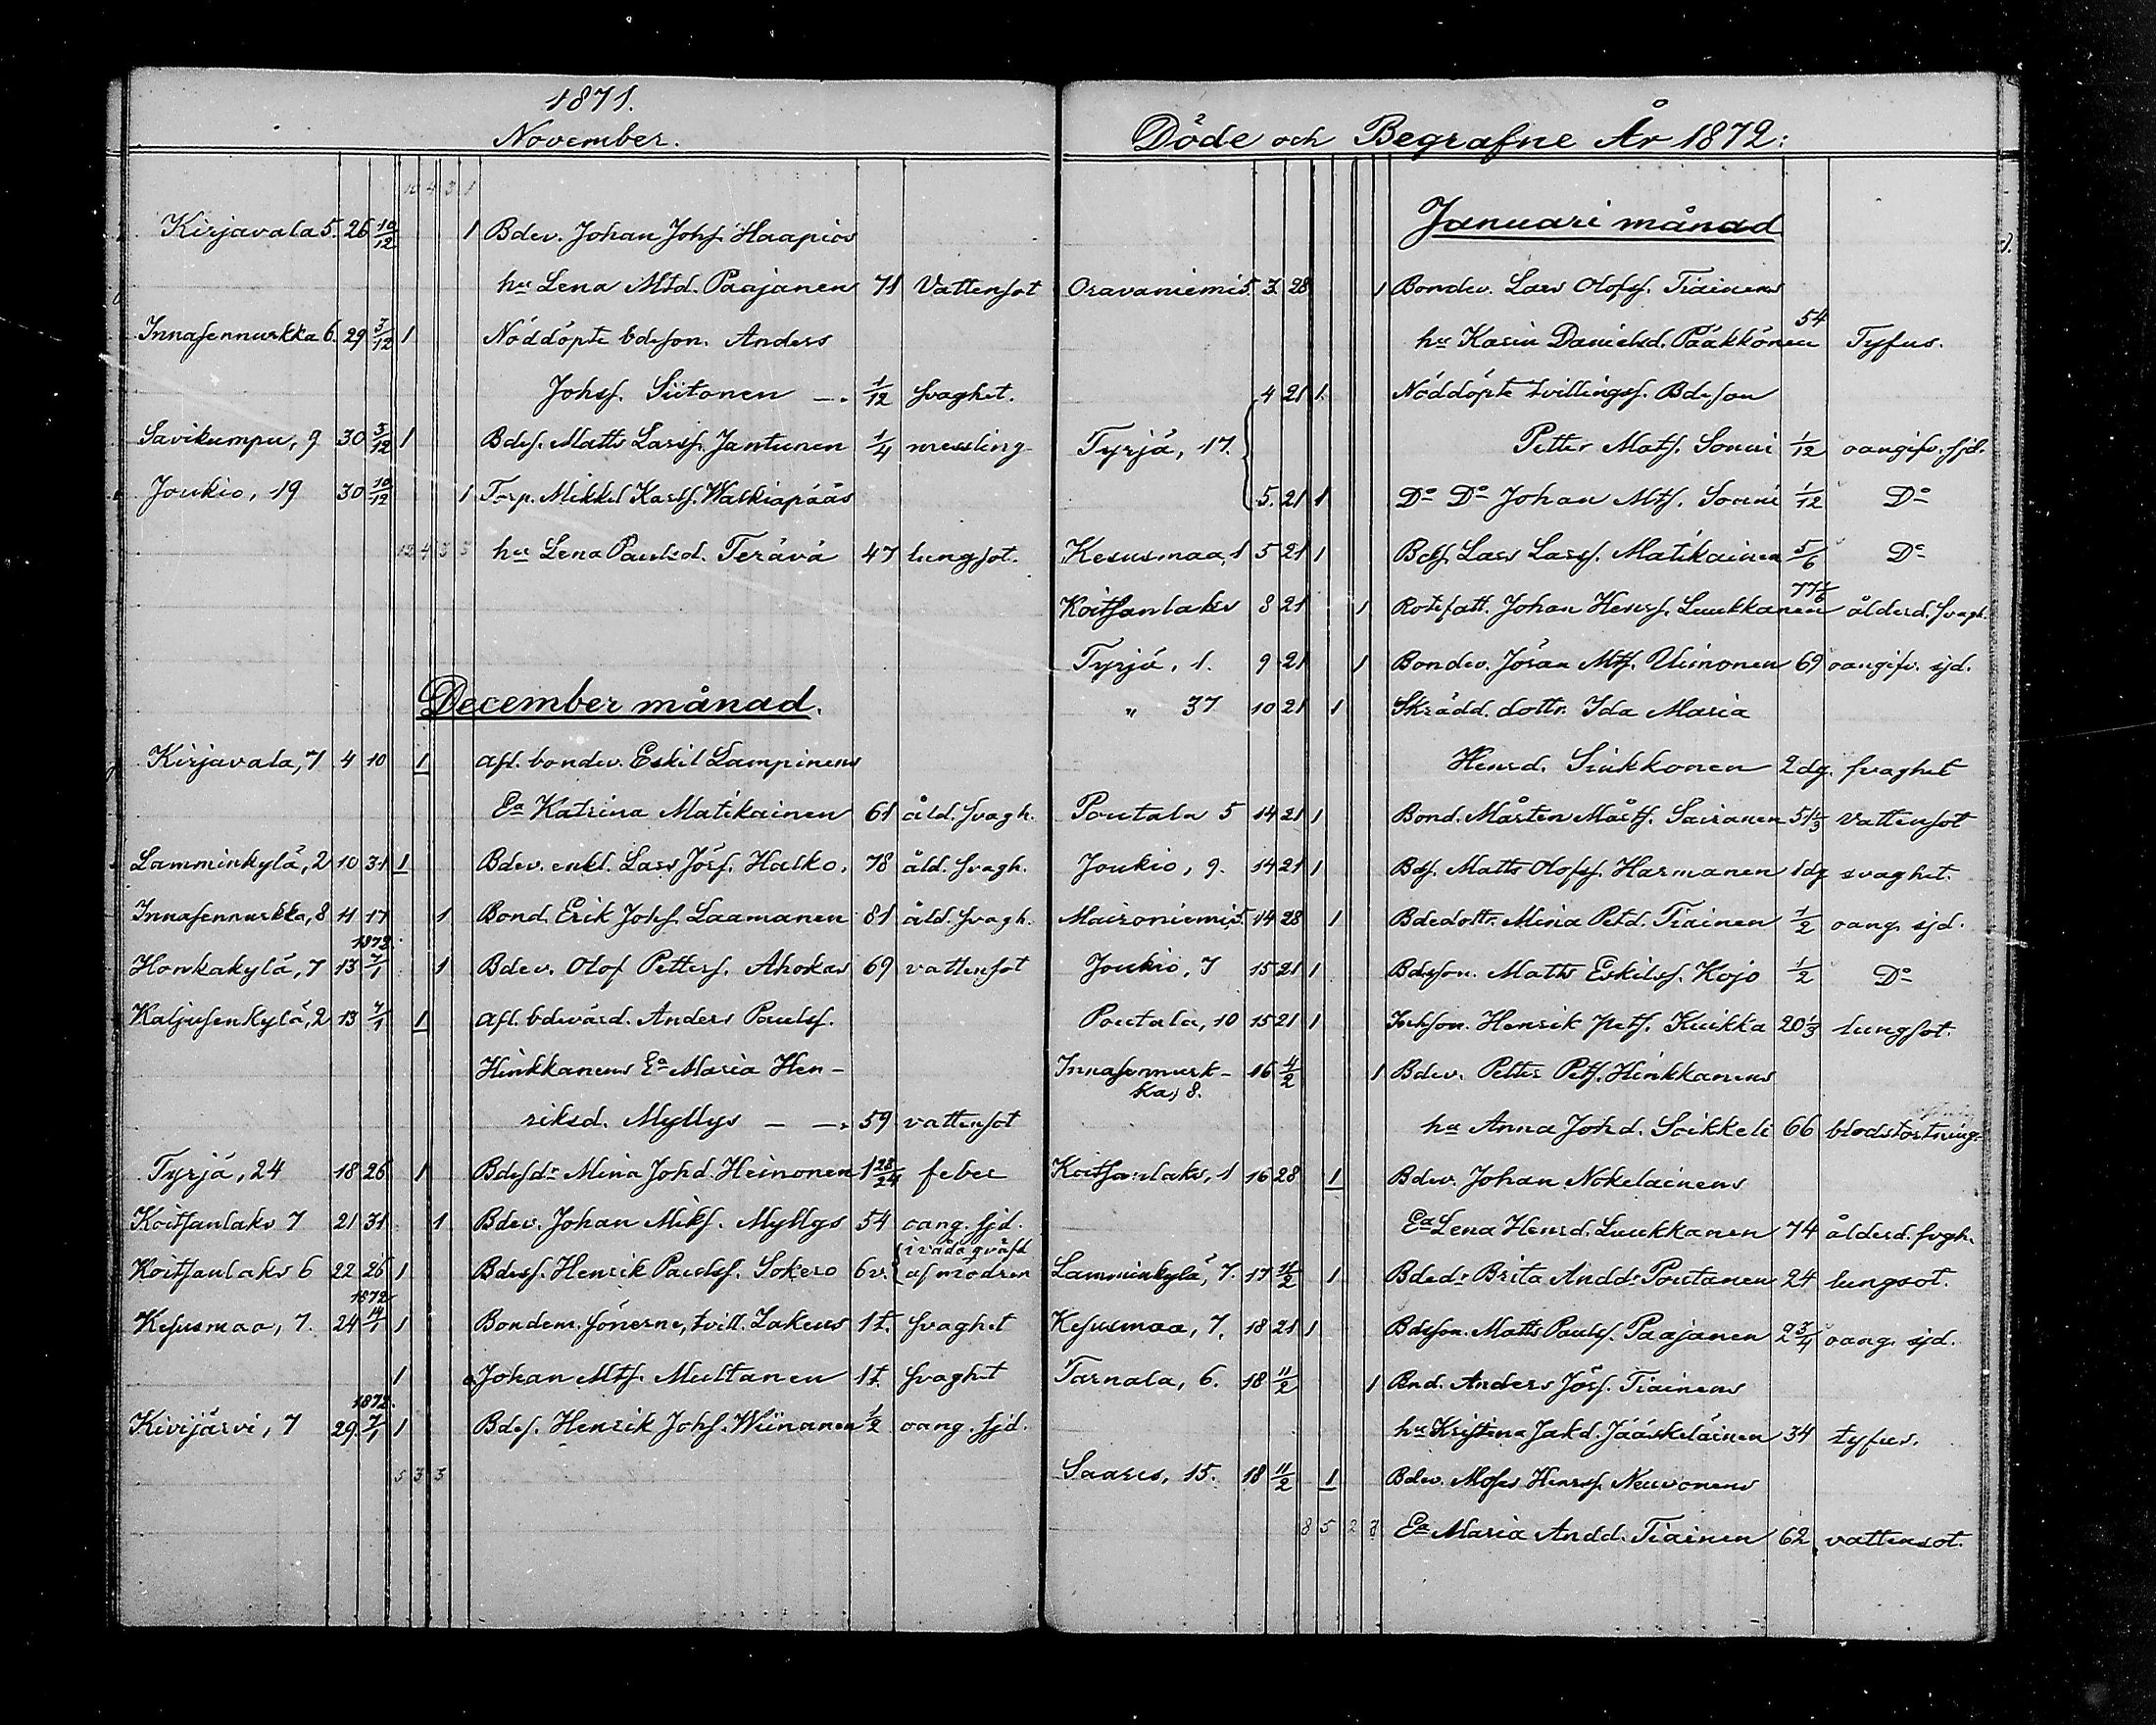 1871.
November.
10 4 3 1
Kirjavala 5. 26 10/12 1 Bdev. Johan Johsf. Haapios
hu Lena Mtd. Paajanen 71 Vattensot
Innasennurkka 6. 29 3/12 1 Nöddöpte bdeson. Anders
Johsf. Siitonen —. 1/12 svaghet.
Savikumpu, 9 30 3/12 1 Bdes. Matts Larsf. Jantunen 1/4 messling
Joukio, 19 30 10/12 1 Torp. Mikkel Karlsf. Walkiapääs
12 4 3 3 hu Lena Paulsd. Terävä 47 lungsot.
December månad.
Kirjavala, 7 4 10 1 Afl. bondev. Eskil Lampinens
Ea Katrina Matikainen 61 åld. svagh.
Lamminkylä, 2 10 31 1 Bdev. enkl. Lars Jösf. Halko. 78 åld. svagh.
Innasennurkka, 8 11 17 1 Bond. Erik Johsf. Laamanen 81 åld. svagh.
1872.
Honkakylä, 7 13 7/1 1 Bdev. Olof Pettersf. Ahokas 69 vattensot
Kaljusenkylä, 2 13 7/1 1 Afl. bdevärd. Anders Paulsf.
Hinkkanens Ea Maria Hen-
riksd. Myllys — —. 59 vattensot
Tyrjä, 24 18 26 1 Bdesdr Mina Johd. Heinonen 1 23/24 feber
Koitsanlaks 7 21 31 1 Bdev. Johan Mikf. Myllys 54 oang. sjd.
Koitsanlaks 6 22 26 1 Bdesf. Henrik Paulsf. Sokero 6v. af modren
1872
Kesusmaa, 7. 24 14/1 1 Bondem. sönerne, tvill. Zakeus 1t. svaghet
1 o Johan Mtsf. Multanen 1t. svaghet
1872.
Kivijärvi, 7 29 7/1 1 Bdes. Henrik Johsf. Wiinanen 1/2 oang. sjd.
5 3 3
Döde och Begrafne År 1872:
Januari månad
Oravaniemi 5. 3. 28 1 Bondev. Lars Olofsf. Tiainens
hu Karin Danielsd. Pääkkönen 54 Tyfus.
4 21 1 Nöddöpte tvillingsf. Bdeson
Tyrjä, 17. Petter Matsf. Sonni 1/12 oangifv. sjd.
5. 21 1 Do Do Johan Mtsf. Sonni 1/12 Do
Kesusmaa, 1 5 21 1 Bdsf. Lars Larsf. Matikainen 5/6 Do
Koitsanlaks 8 21 1 Rotefatt. Johan Henrsf. Luukkanen 77 1/6 ålderd. svagh.
Tyrjä, 1. 9 21 1 Bondev. Jöran Mtsf. Uimonen 69 oangifv. sjd.
" 37 10 21 1 Skrädd. dottr. Ida Maria
Henrd. Sinkkonen 2 dg. svaghet
Poutala 5 14 21 1 Bond. Mårten Mårtf. Sairanen 51 1/3 vattensot
Joukio, 9. 14 21 1 Bdsf. Matts Olofsf. Harmanen 1 dg svaghet.
Maironiemi, 5. 14 28 1 Bdedottr. Mina Petd. Tiainen 1/2 oang. sjd.
Joukio, 7 15 21 1 Bdeson. Matts Eskilsf. Kojo 1/2 Do
Poutala, 10 15 21 1 Inhson. Henrik Petf. Kuikka 20 1/3 lungsot.
Innasennurk- 16 4/2 1 Bdev. Petter Petf. Hinkkanens
ka, 8.
hu Anna Johd. Soikkeli 66 blodstörtning.
Koitsanlaks, 1 16 28 1 Bdev. Johan Nokelainens
Ea Lena Henrd. Luukkanen 74 ålderd. svgh.
Lamminkylä, 7. 17 11/2 1 Bdedr Brita Anddr Poutanen 24 lungsot.
Kesusmaa, 7. 18 21 1 Bdeson. Matts Paulsf. Paajanen 2 3/4 oang. sjd.
Tarnala, 6. 18 11/2 1 Bnd. Anders Jösf. Tiainens
hu Kristina Jakd. Jääskeläinen 34 tyfus.
Saares, 15. 18 11/2 1 Bdev. Moses Henrsf. Neuvonens
8 5 2 3 Ea Maria Andd. Tiainen 62 vattensot.